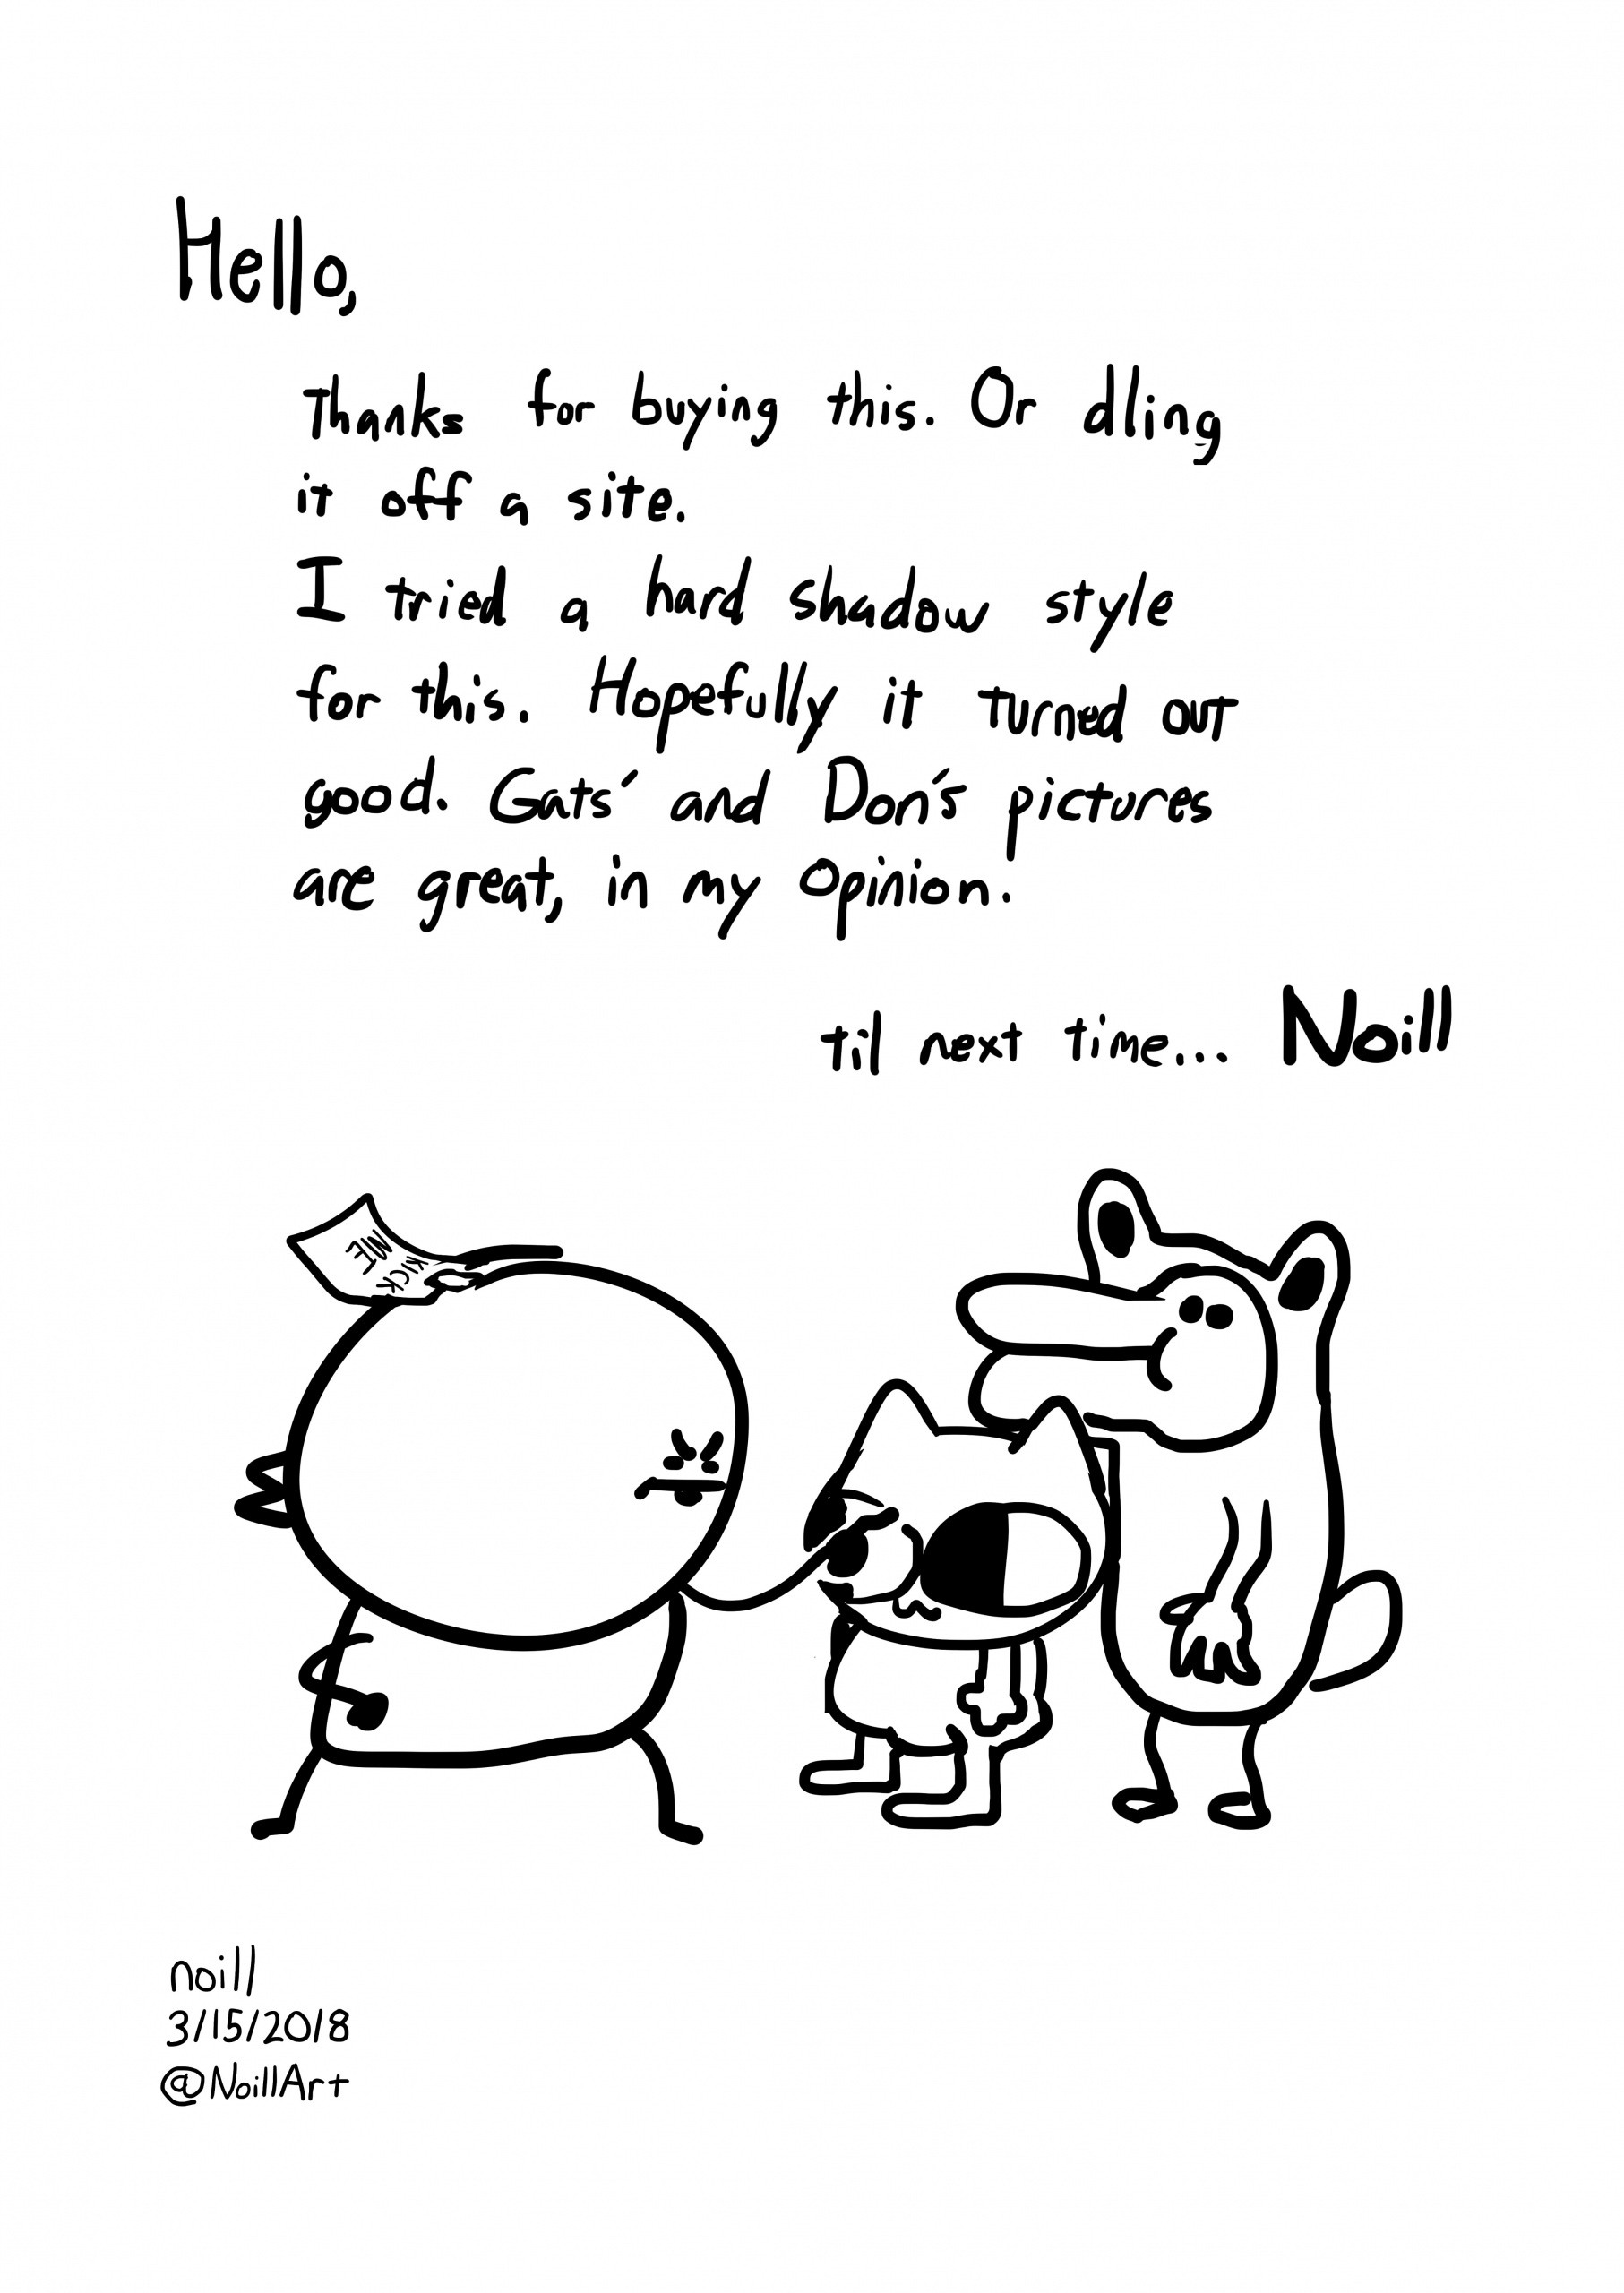 Hello,
Thanks for buying this. Or dling
it off a site.
I tried a hard shadow style
for this. Hopefully it turned out
good. Gats' and Don's pictures
are great, in my opinion.
til next time... Noill
KICK
ME
noill
3/15/2018
@NoillArt